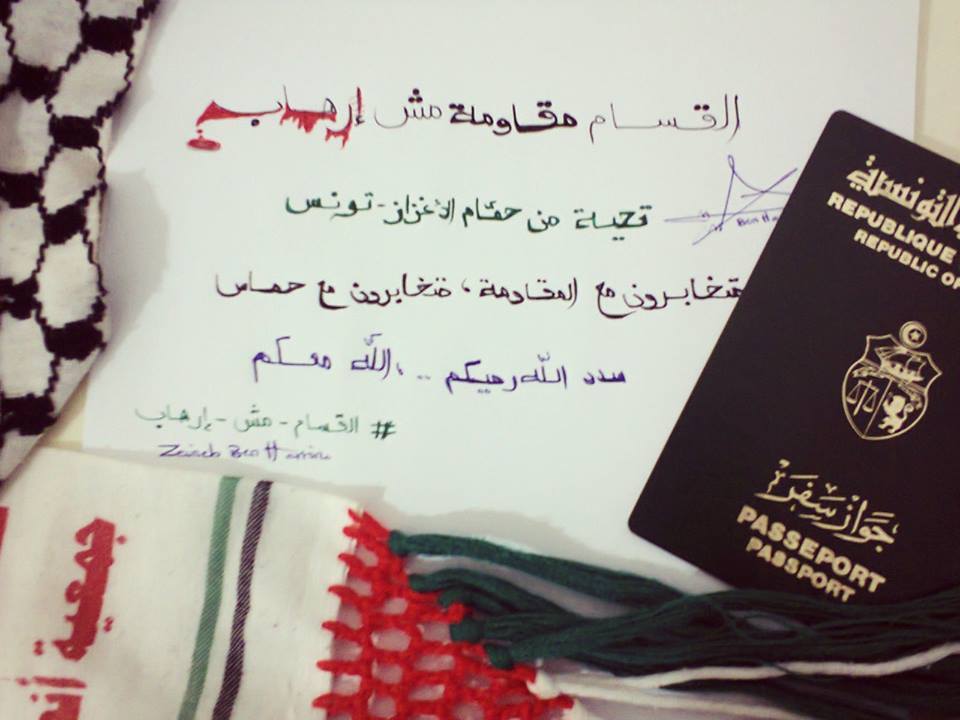 القسام مقاومة مش إرهاب
تحية من حمّام الأغزاز - تونس
متخابرون مع المقاومة ، متخابرون مع حماس
سدد الله رميكم .. ، الله معكم
# القسام - مش - إرهاب
Zeineb Ben
التونسية
REPUBLIQUE
REPUBLIC OF
جواز سفر
PASSEPORT
PASSPORT
جمعية